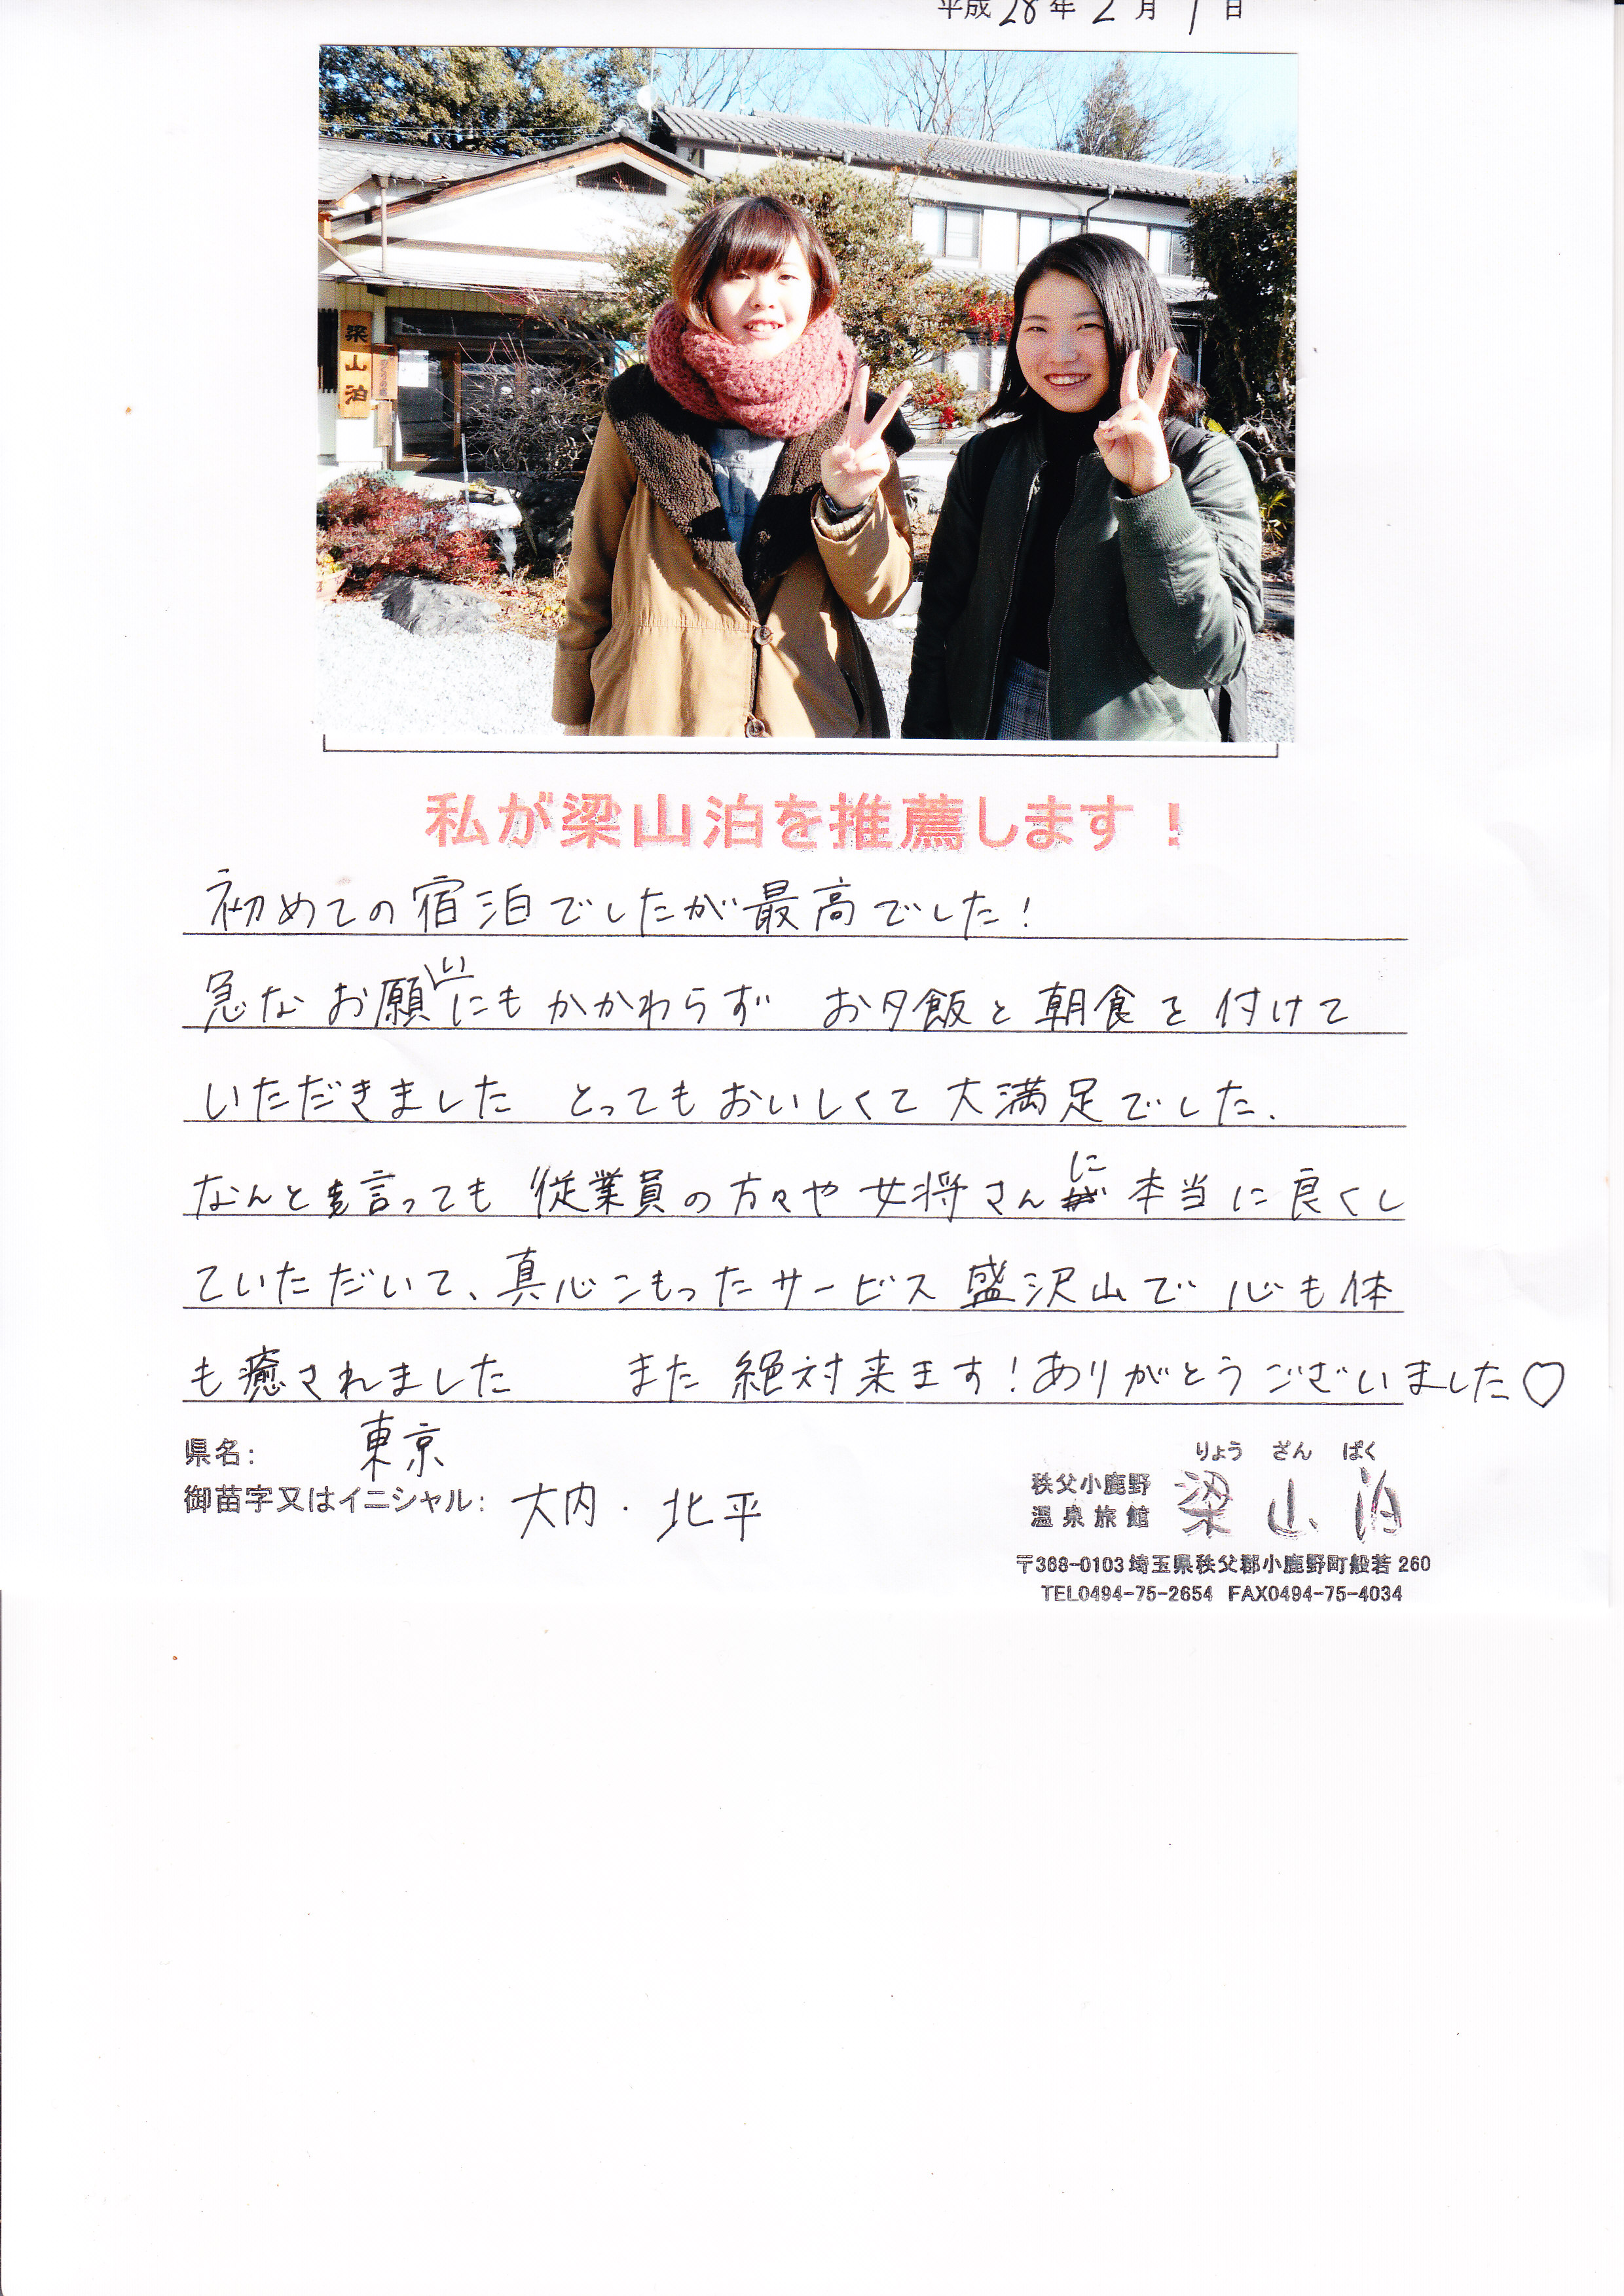 平成28年2月1日
梁山泊
私が梁山泊を推薦します！
初めての宿泊でしたが最高でした！
急なお願いにもかかわらず お夕飯と朝食を付けて
いただきました とってもおいしくて大満足でした.
なんと言っても従業員の方々や女将さんに本当に良くし
ていただいて、真心こもったサービス盛沢山で心も体
も癒されました また絶対来ます！ありがとうございました♡
県名： 東京
御苗字又はイニシャル： 大内・北平
りょう ざん ぱく
秩父小鹿野
温泉旅館
梁山泊
〒368-0103埼玉県秩父郡小鹿野町般若260
TEL0494-75-2654 FAX0494-75-4034